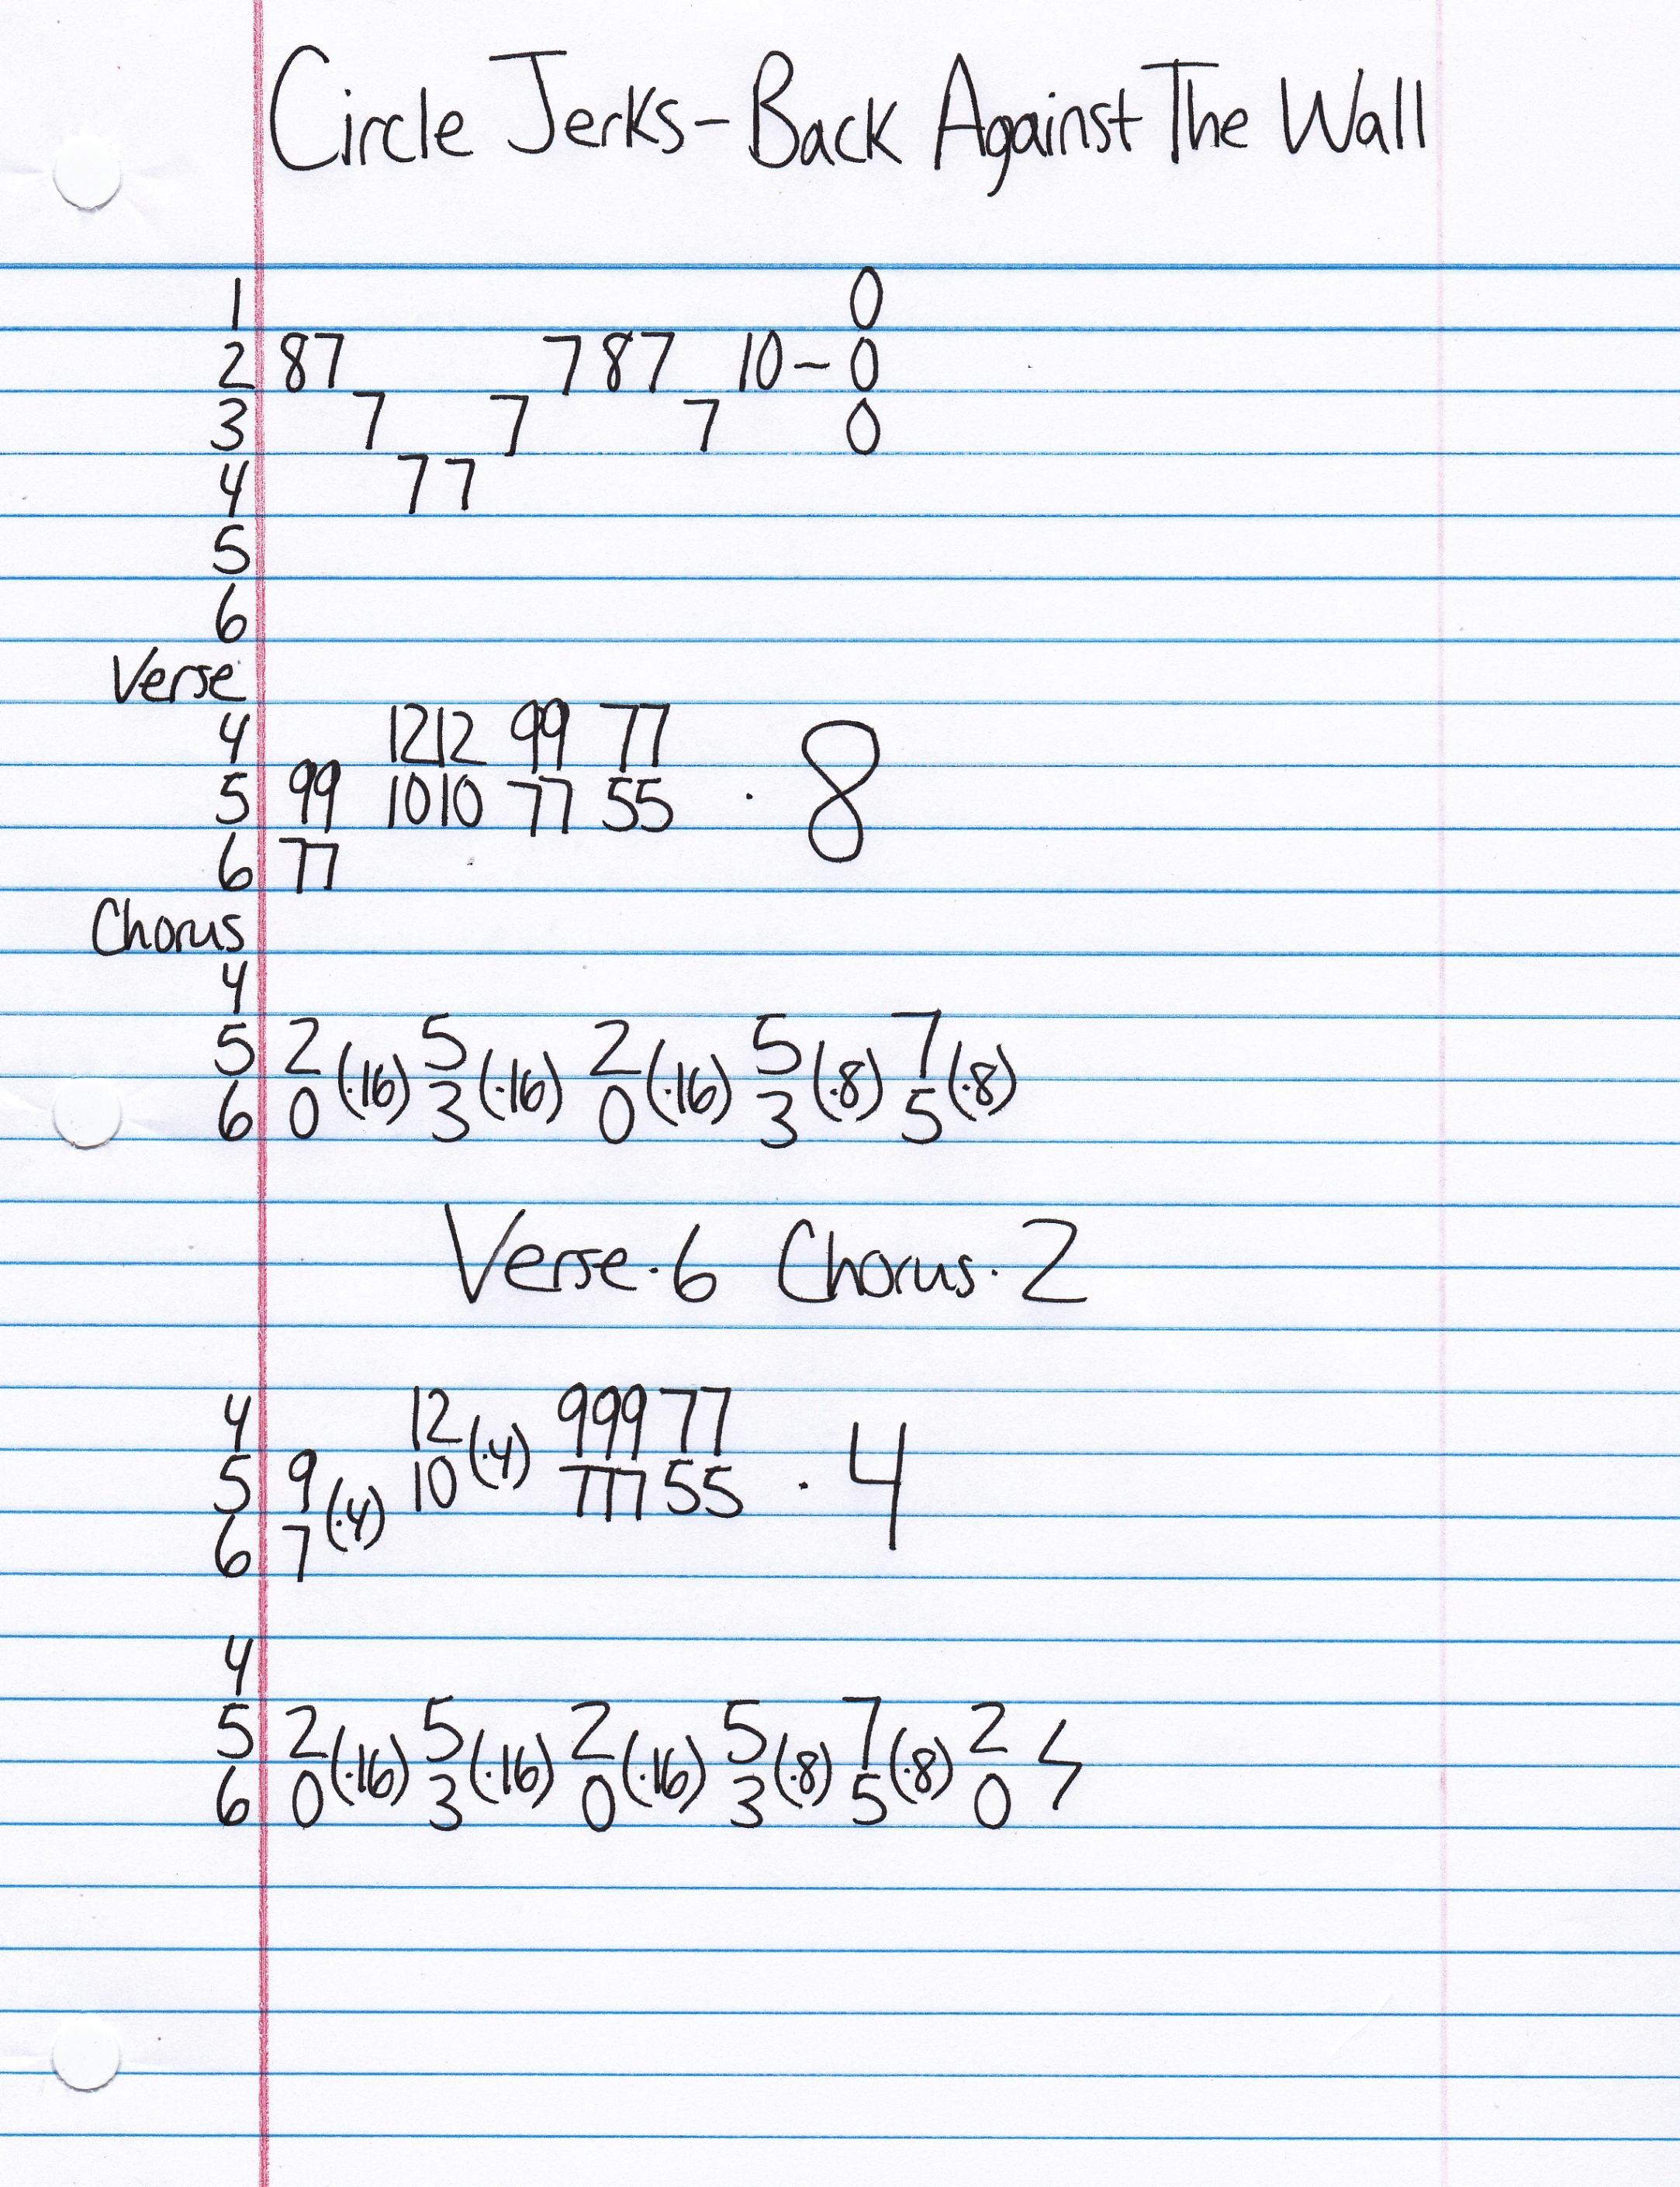 Circle Jerks - Back Against The Wall
1 0
2 87 7 87 10 - 0
3 7 7 7 0
4 77
5
6
Verse
4 1212 99 77
5 99 1010 77 55 · 8
6 77
Chorus
4
5 2 (·16) 5 (·16) 2 (·16) 5 (·8) 7 (·8)
6 0 3 0 3 5
Verse · 6 Chorus · 2
4 12 (·4) 999 77
5 9 (·4) 10 777 55 · 4
6 7
4
5 2 (·16) 5 (·16) 2 (·16) 5 (·8) 7 (·8) 2
6 0 3 0 3 5 0